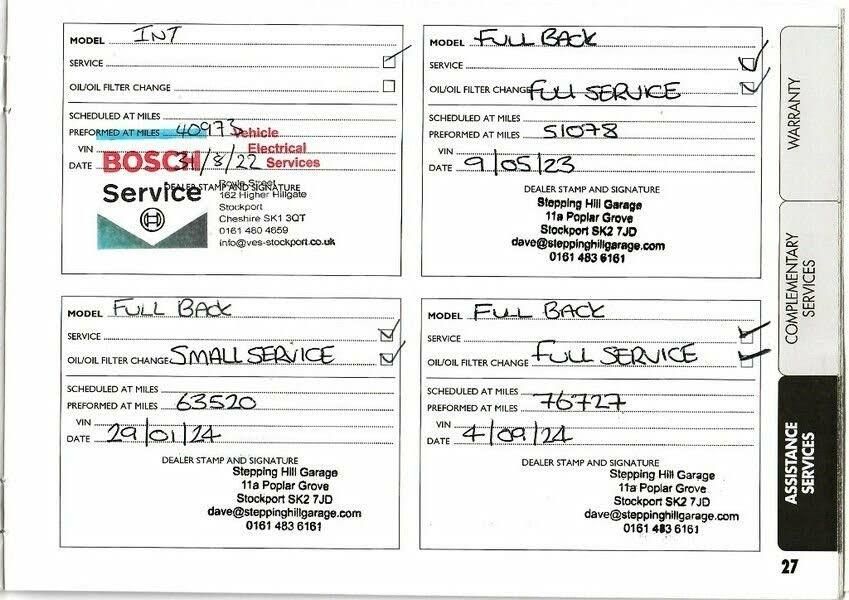 MODEL INT
SERVICE
OIL/OIL FILTER CHANGE
SCHEDULED AT MILES
PREFORMED AT MILES 40973
Vehicle
VIN
Electrical
DATE 31/8/22
BOSCH
Services
DEALER STAMP AND SIGNATURE
Service
Royle Street
162 Higher Hillgate
Stockport
Cheshire SK1 3QT
0161 480 4659
info@ves-stockport.co.uk
MODEL FULL BACK
SERVICE
OIL/OIL FILTER CHANGE FULL SERVICE
SCHEDULED AT MILES
PREFORMED AT MILES 51078
VIN
DATE 9/05/23
DEALER STAMP AND SIGNATURE
Stepping Hill Garage
11a Poplar Grove
Stockport SK2 7JD
dave@steppinghillgarage.com
0161 483 6161
MODEL FULL BACK
SERVICE
OIL/OIL FILTER CHANGE SMALL SERVICE
SCHEDULED AT MILES
PREFORMED AT MILES 63520
VIN
DATE 29/01/24
DEALER STAMP AND SIGNATURE
Stepping Hill Garage
11a Poplar Grove
Stockport SK2 7JD
dave@steppinghillgarage.com
0161 483 6161
MODEL FULL BACK
SERVICE
OIL/OIL FILTER CHANGE FULL SERVICE
SCHEDULED AT MILES
PREFORMED AT MILES 76727
VIN
DATE 4/09/24
DEALER STAMP AND SIGNATURE
Stepping Hill Garage
11a Poplar Grove
Stockport SK2 7JD
dave@steppinghillgarage.com
0161 483 6161
WARRANTY
COMPLEMENTARY
SERVICES
ASSISTANCE
SERVICES
27